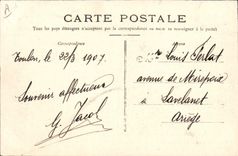 CARTE POSTALE
Tous les pays étrangers n'acceptent pas la correspondance au recto se renseigner à la poste
Correspondance
Toulon, le 22/3 1907
Souvenir affectueux
G. Jacob
Louis Forlat
avenue de Mirepoix
à Lavelanet
Ariège